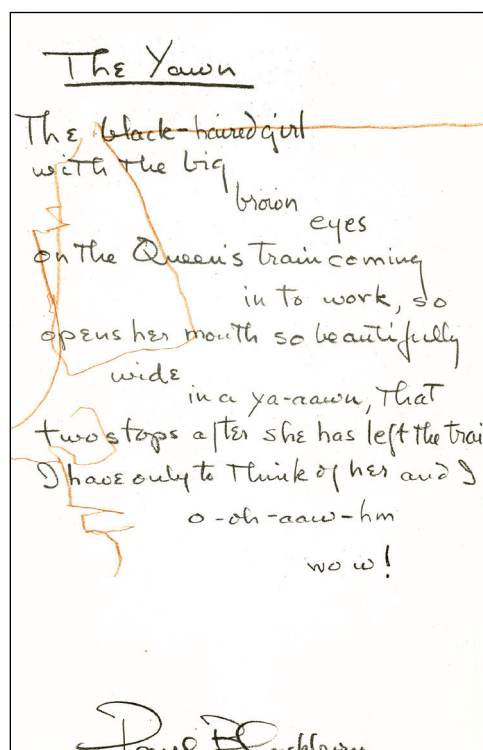 The Yawn
The black-haired girl
with the big
brown
eyes
on the Queen's train coming
in to work, so
opens her mouth so beautifully
wide
in a ya-aawn, that
two stops after she has left the trai
I have only to think of her and I
o-oh-aaw-hm
wow!
Paul Blackburn